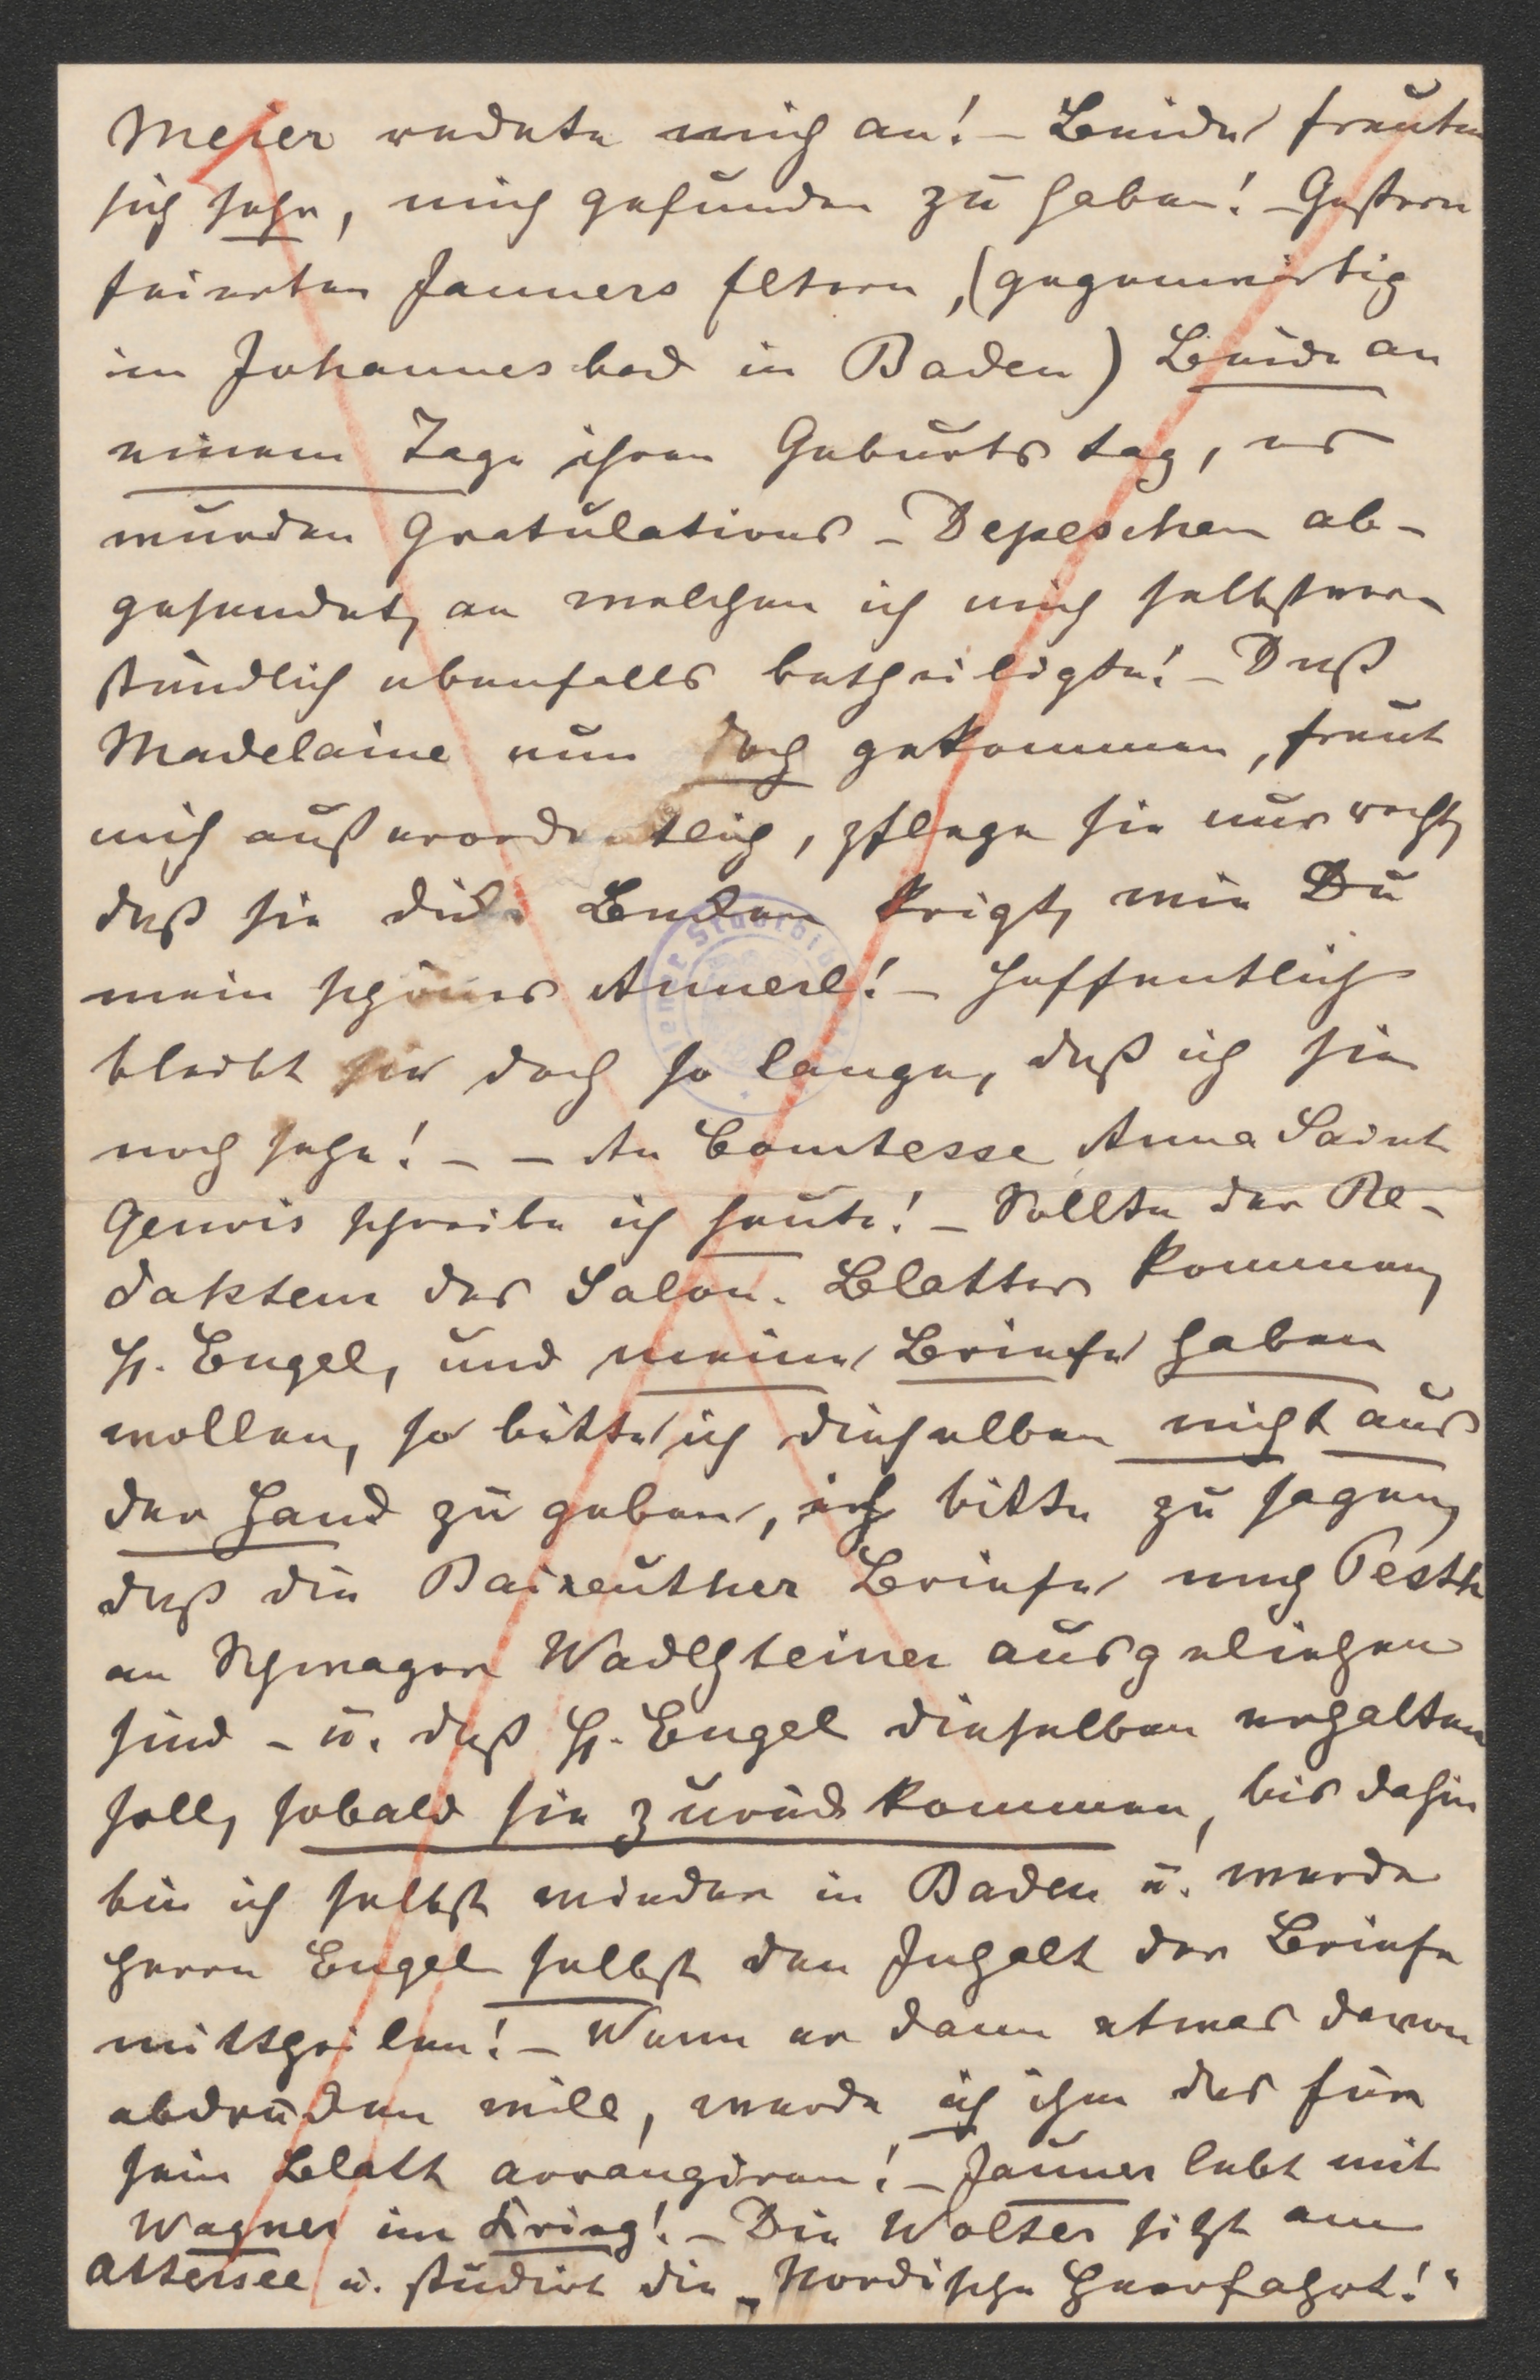 Meier redete mich an! – Beide freuten
sich sehr, mich gefunden zu haben! – Gestern
feierten Jauners Eltern, (gegenwärtig
im Johannesbad in Baden) Beide an
einem Tage ihren Geburtstag, es
wurden Gratulations-Depeschen ab-
gesendet, an welchen ich mich selbstver-
ständlich ebenfalls betheiligte! – Daß
Madelaine nun doch gekommen, freut
mich außerordentlich, pflege sie nur recht,
daß sie dicke Backen krigt, wie Du
mein schönes Annerl! – Hoffentlich
bleibt sie doch so lange, daß ich sie
noch sehe! – – An Comtesse Anna Saint
Genois schreibe ich heute! – Sollte der Re-
dakteur des Salon-Blattes kommen,
H. Engel, und meine Briefe haben
wollen, so bitte ich dieselben nicht aus
der Hand zu geben, ich bitte zu sagen,
daß die Baireuther Briefe nach Pesth
an Schwager Wadlsteiner ausgeliehen
sind – u. daß H. Engel dieselben erhalten
soll, sobald sie zurück kommen, bis dahin
bin ich selbst wieder in Baden u. werde
Herrn Engel selbst den Inhalt der Briefe
mittheilen! – Wenn er dann etwas davon
abdrucken will, werde ich ihm das für
sein Blatt arrangiren! – Jauner lebt mit
Wagner im Krieg! – Die Wolter sitzt am
Attersee u. studirt die „Nordische Heerfahrt!“